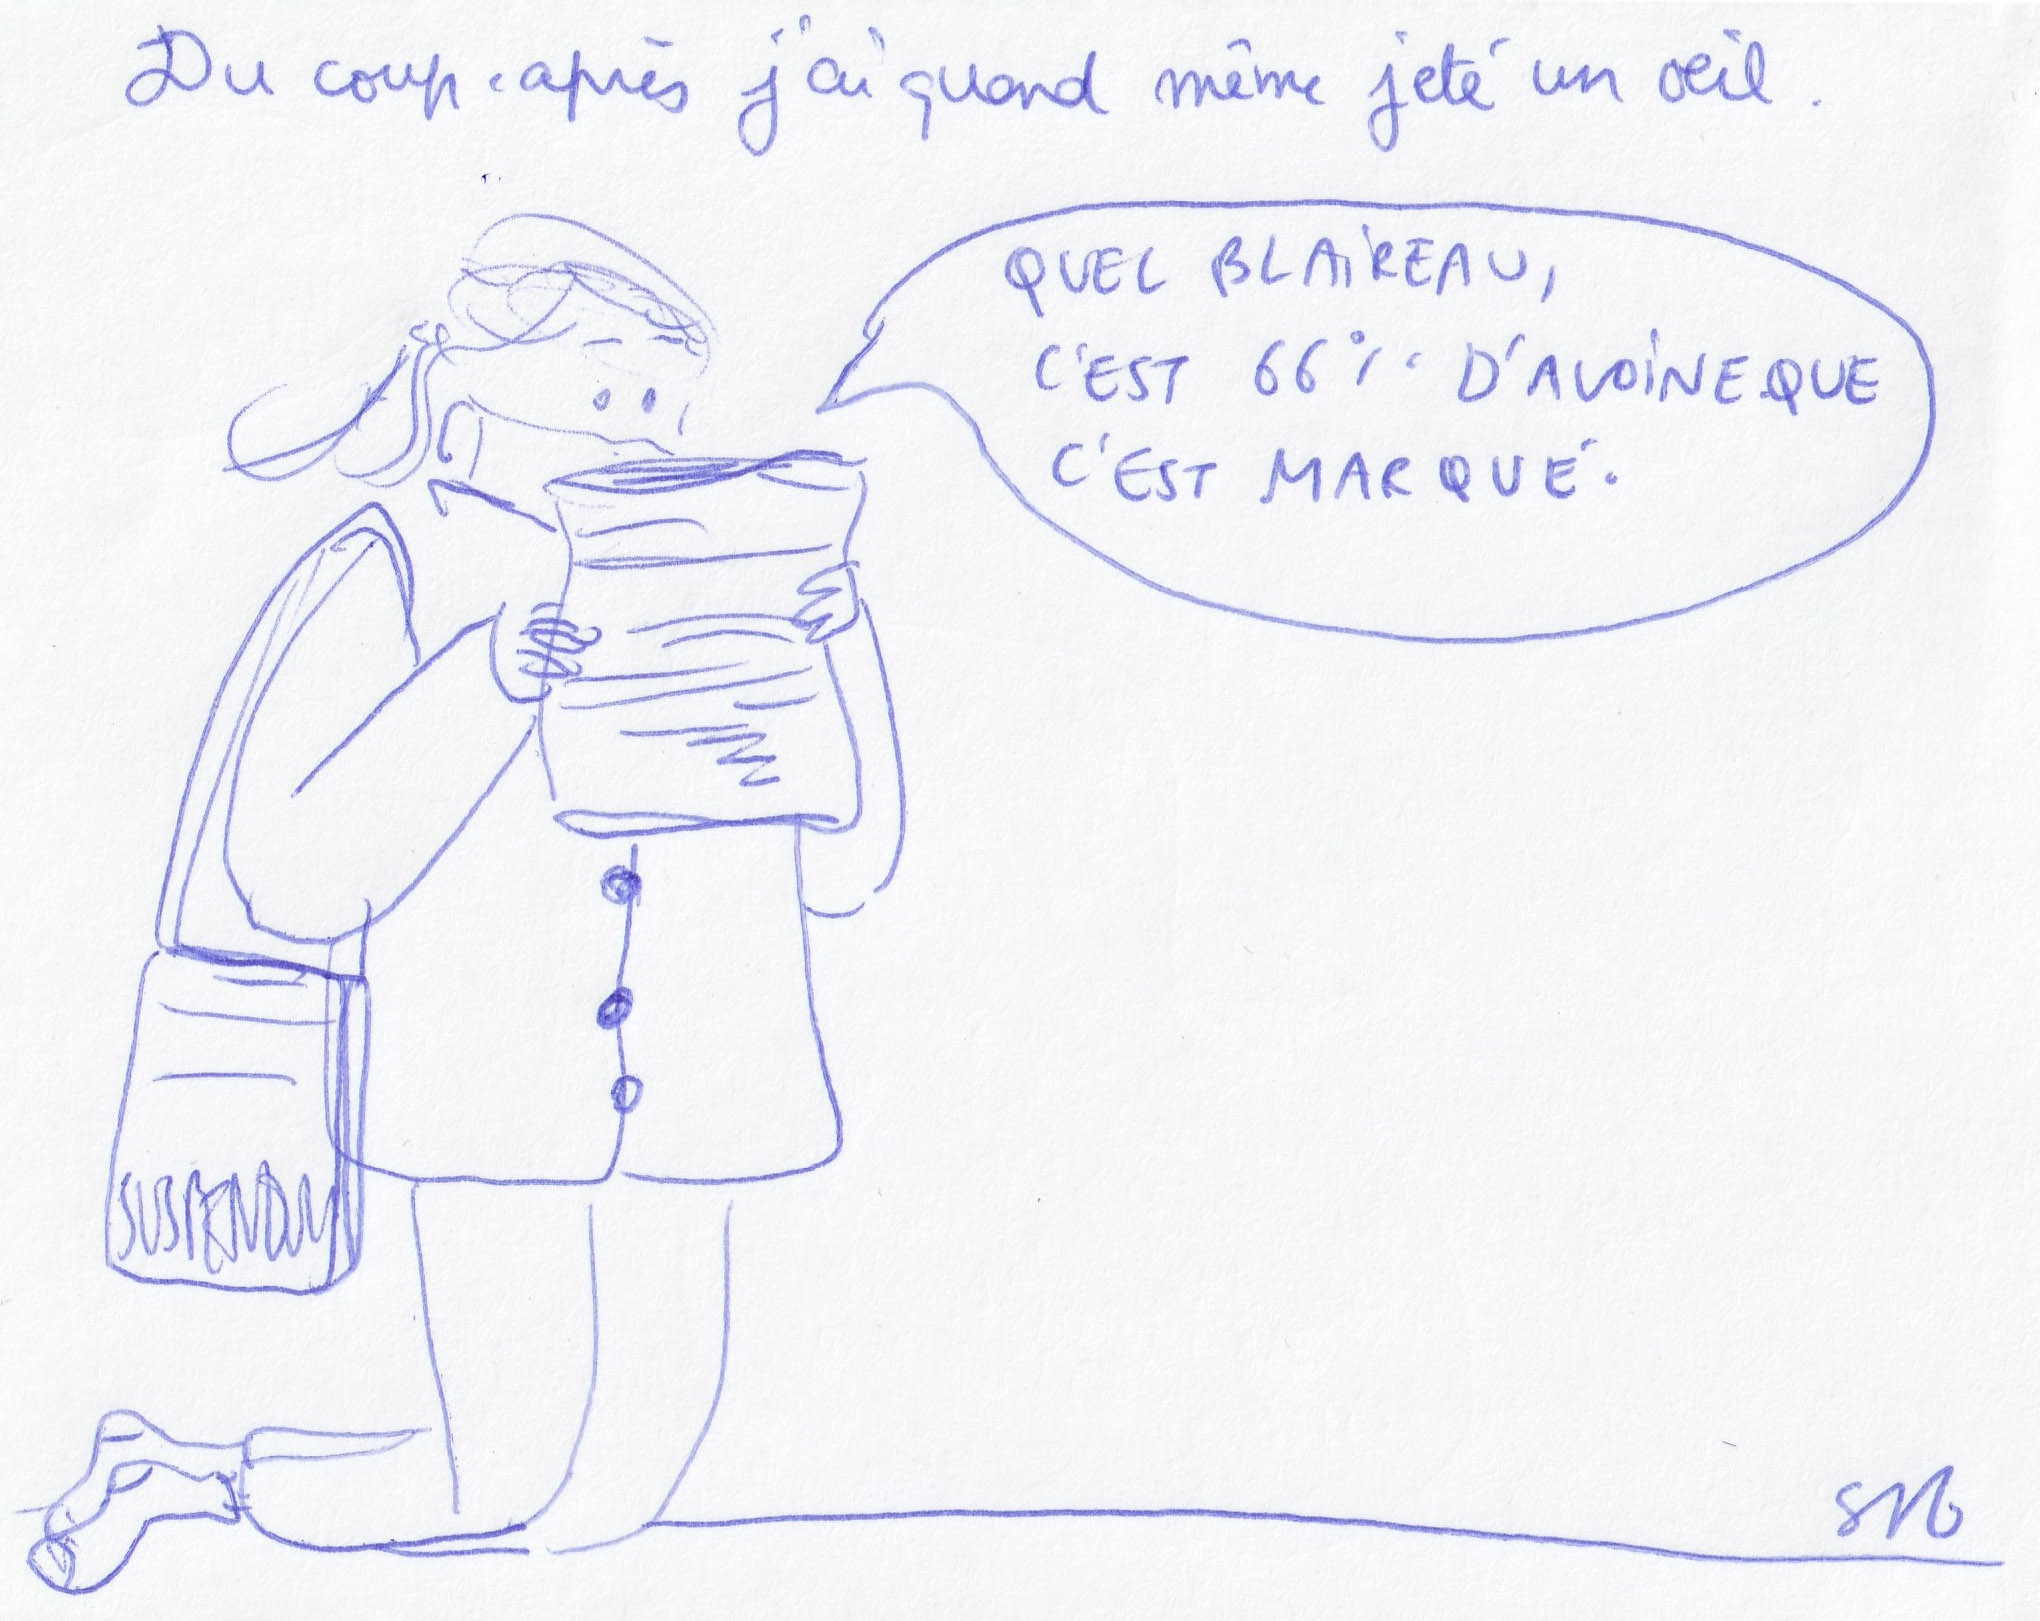 Du coup. après j'ai quand même jeté un oeil.
QUEL BLAIREAU,
C'EST 66% D'AVOINE QUE
C'EST MARQUÉ.
SUSPENDU